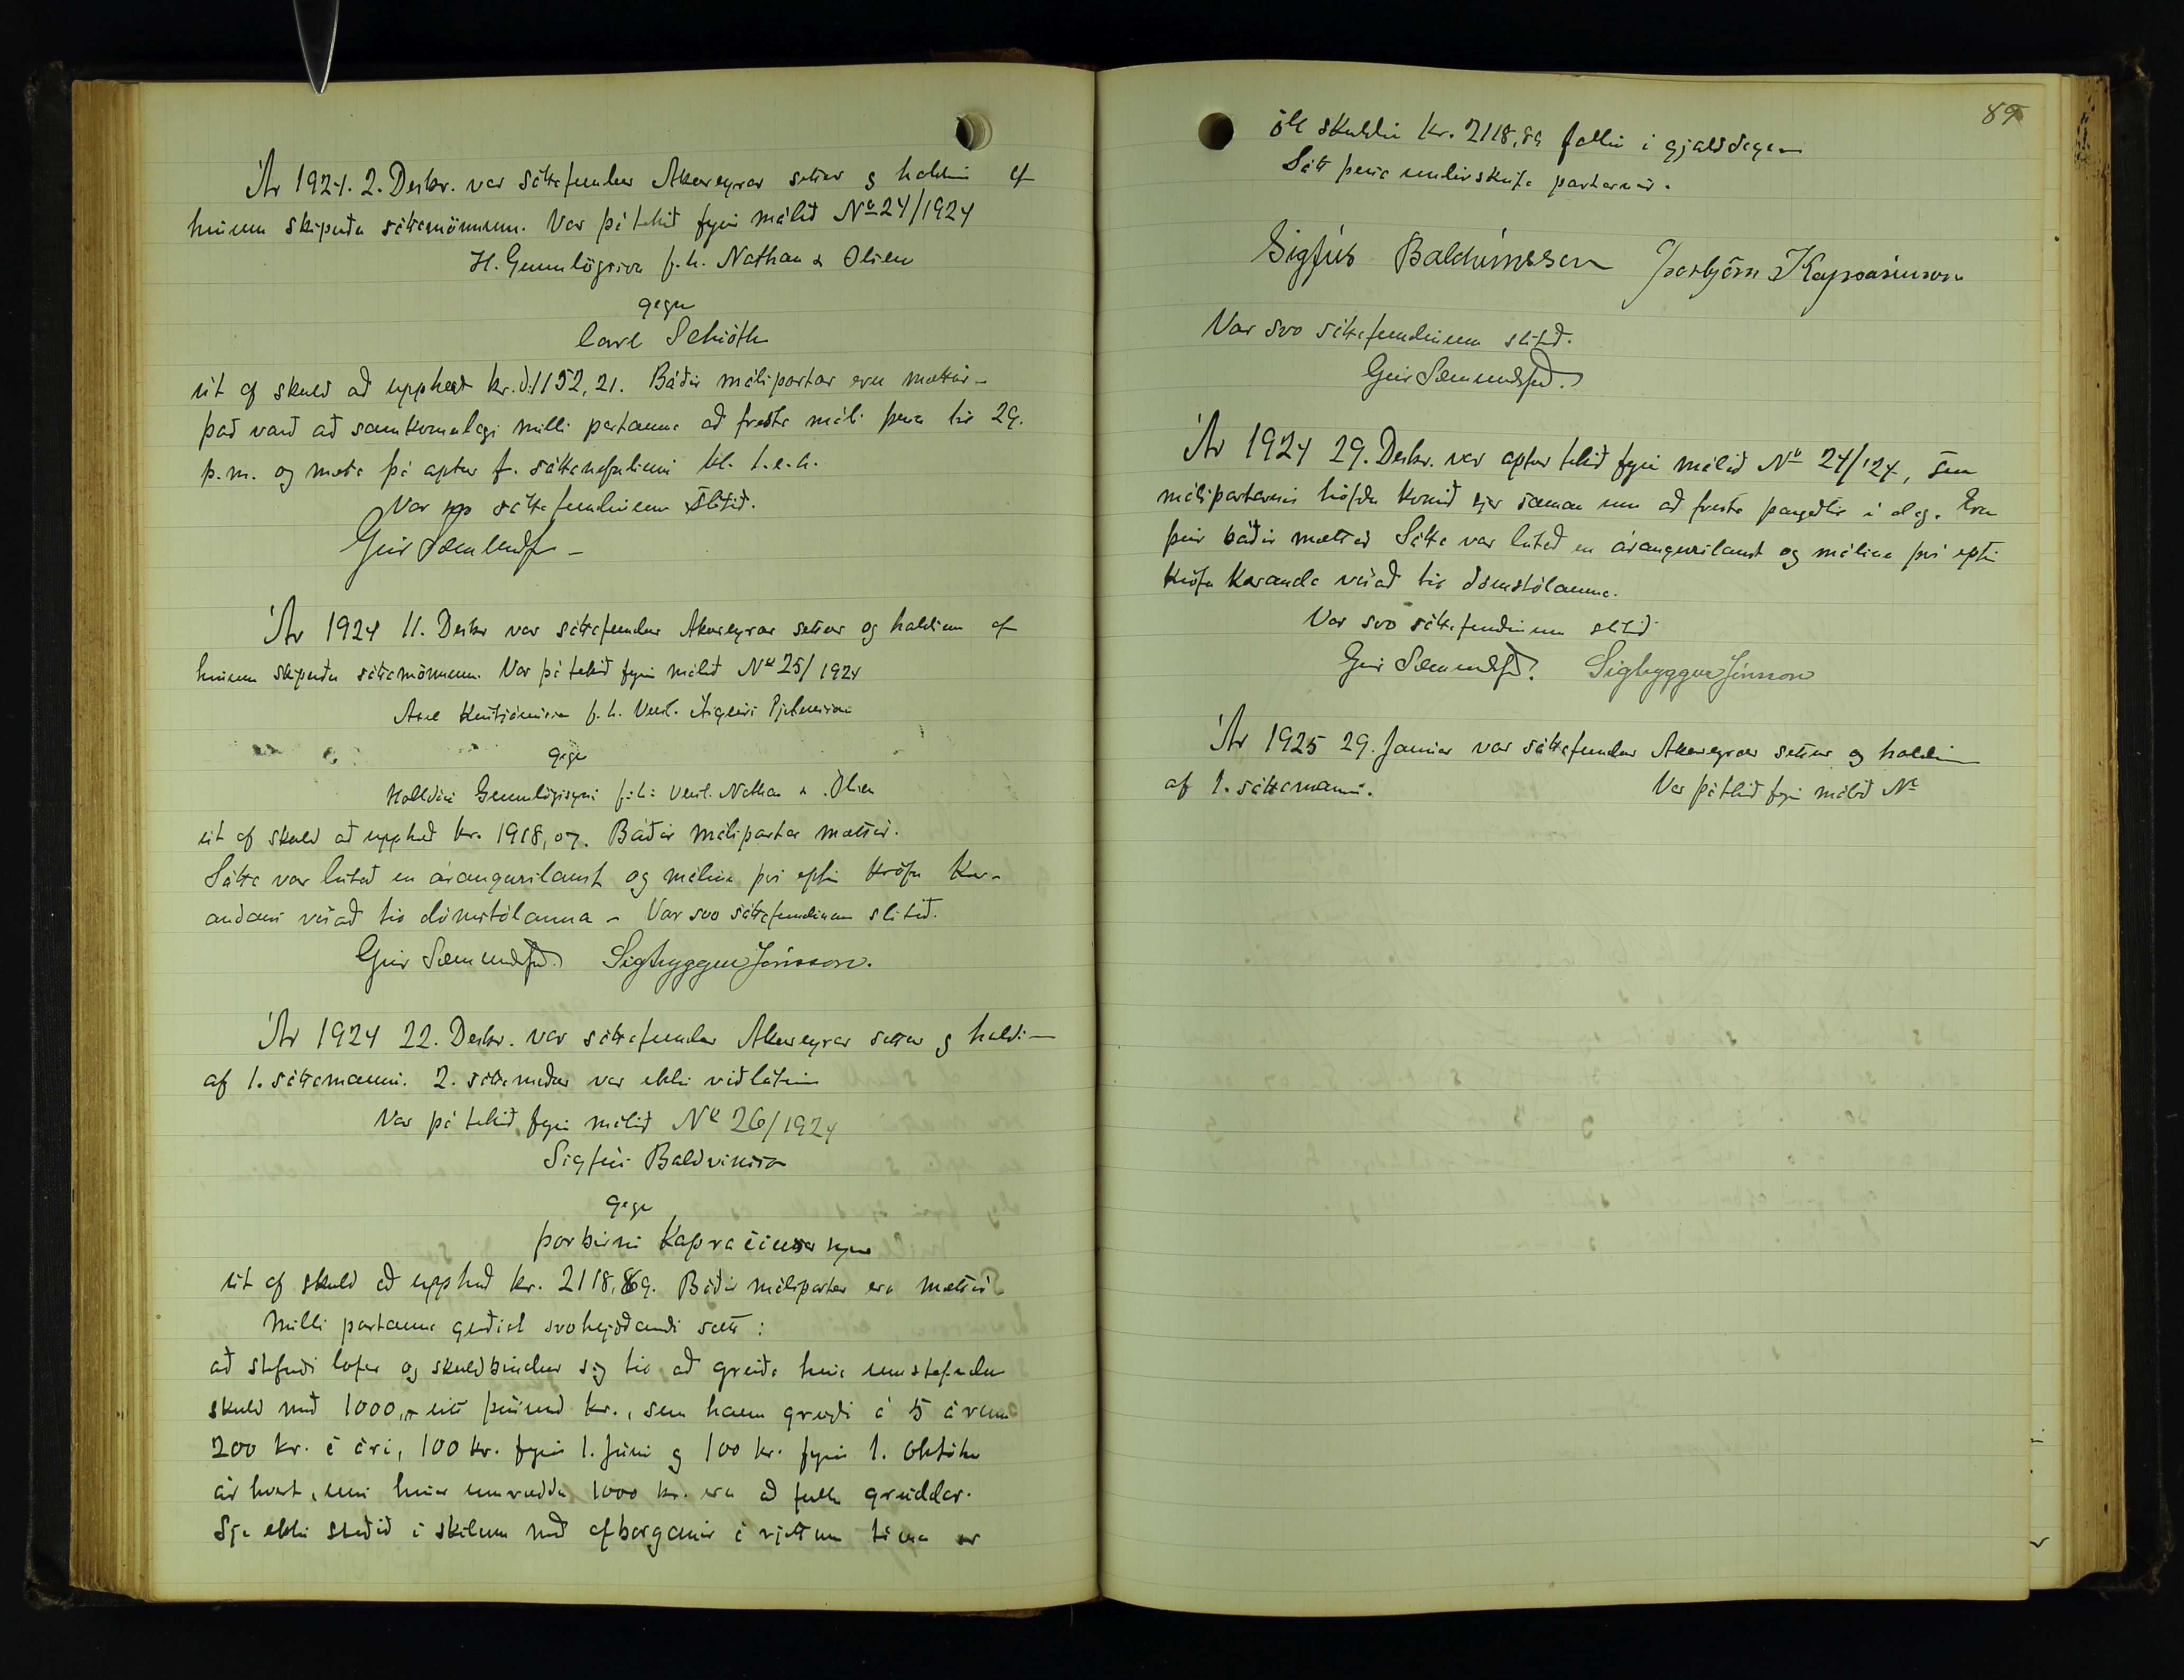 Ár 1924. 2. Desbr. var sáttafundur Akureyrar settur og haldinn af
hinum skipuðu sáttamönnum. Var þá tekið fyrir málið No 24/1924
H. Gunnlögsson f.h. Nathan & Olsen
gegn
Carl Schiöth
út af skuld að upphæð kr. d. 1152,21. Báðir málspartar eru mættir –
það varð að samkomulagi milli partanna að fresta máli þessu til 29.
þ.m. og mæta þá aptur f. sáttanefndinni kl. 1 e.h.
Var svo sáttafundinum slitið.
Geir Sæmundss –
Ár 1924 11. Desbr var sáttafundur Akureyrar settur og haldinn af
hinum skipuðu sáttamönnum. Var þá tekið fyrir málið No 25/1924
Axel Kristjánsson f.h. Versl. Ásgeirs Pjeturssonar
gegn
Halldóri Gunnlögssyni f.h. Versl. Nathan & Olsen
út af skuld að upphæð kr. 1918,07. Báðir málspartar mættir.
Sátta var leitað en árangurslaust og málinu því eptir kröfu kær-
andans vísað til dómstólanna – Var svo sáttafundinum slitið.
Geir Sæmundss. Sigtryggur Jónsson.
Ár 1924 22. Desbr. var sáttafundur Akureyrar settur og haldinn
af 1. sáttamanni. 2. sáttamaður var ekki viðlátinn
Var þá tekið fyrir málið No 26/1924
Sigfús Baldvinsson
gegn
Þorbirni Kaprasíussyni
út af skuld að upphæð kr. 2118,89. Báðir málspartar eru mættir.
Milli partanna gerðist svohljóðandi sætt:
að stefndi lofar og skuldbindur sig til að greiða hina umstefndu
skuld með 1000,– eitt þúsund kr., sem hann greiði á 5 árum
200 kr. á ári, 100 kr. fyrir 1. Júní og 100 kr. fyrir 1. Október
ár hvert, uns hinar umræddu 1000 kr. eru að fullu greiddar.
Sje ekki staðið í skilum með afborganir á rjettum tíma er
89
öll skuldin kr. 2118,89 fallin í gjalddaga
Sátt þessa undirskrifa partarnir.
Sigfús Baldvinsson Þorbjörn Kaprasíusson
Var svo sáttafundinum slitið.
Geir Sæmundss.
Ár 1924 29. Desbr. var aptur tekið fyrir málið No 24/'24, sem
málspartarnir höfðu komið sjer saman um að fresta þangað til í dag. Eru
þeir báðir mættir Sátta var leitað en árangurslaust og málinu því eptir
kröfu kæranda vísað til dómstólanna.
Var svo sáttafundinum slitið
Geir Sæmundss. Sigtryggur Jónsson
Ár 1925 29. Janúar var sáttafundur Akureyrar settur og haldinn
af 1. sáttamanni. Var þá tekið fyrir málið No